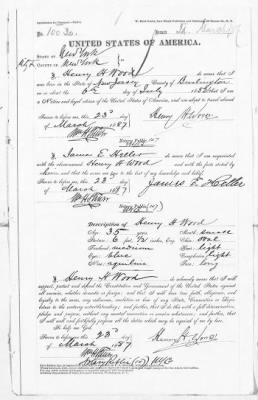 No. 10020.
UNITED STATES OF AMERICA.
STATE OF New York
COUNTY OF New York
I, Henry H Wood do swear that I was
born in the State of New Jersey County of Burlington
on the 6th day of July 1851; that I am
a Native and loyal citizen of the United States of America, and am about to travel abroad.
Sworn to before me, this 23d
day
of March 1887
Henry H Wood
Notary Public
I, James E. Heller do swear that I am acquainted
with the aforementioned Henry H Wood and with the facts stated by
him, and that the same are true to the best of my knowledge and belief.
Sworn to before me, this 23d
day
of March 1887
James E Heller
Notary Public
Description of Henry H Wood
Age: 35 years
Mouth: small
Stature: 6
Chin: oval
Forehead: medium
Hair: light
Eyes: blue
Complexion: light
Nose: aquiline
Face: long
I, Henry H Wood do solemnly swear that I will
support, protect and defend the Constitution and Government of the United States against
all enemies, whether domestic or foreign; and that I will bear true faith, allegiance, and
loyalty to the same, any ordinance, resolution or law of any State, Convention or Legislature
to the contrary notwithstanding; and further, that I do this with a full determination,
pledge and purpose, without any mental reservation or evasion whatsoever; and further, that
I will well and faithfully perform all the duties which may be required of me by law.
So help me God.
Sworn to before me, this 23d
day
of March 1887
Henry H Wood
Notary Public